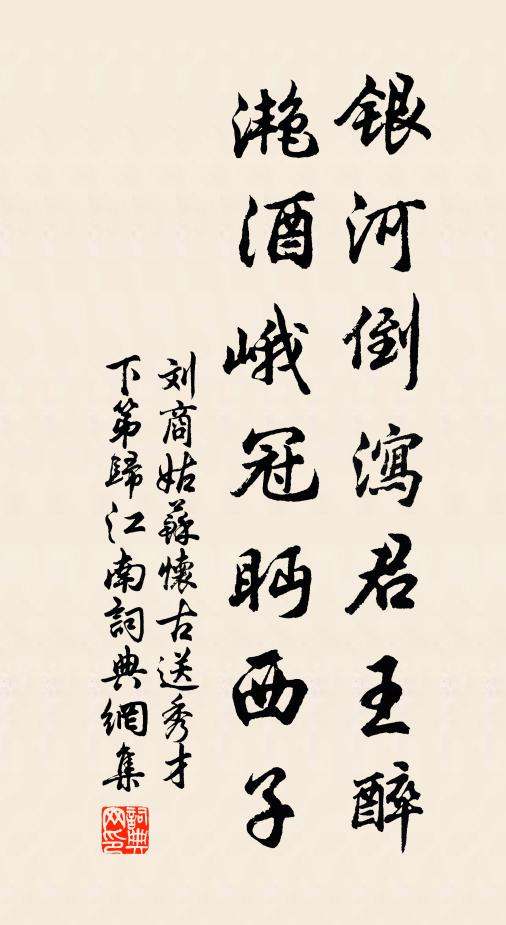 銀河倒瀉君王醉
灔酒峨冠眄西子
刘商姑蘇懷古送秀才
下第歸江南詞典網集
詞典
网印